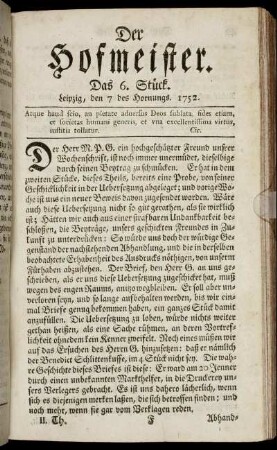 Der
Hofmeister.
Das 6. Stück.
Leipzig, den 7 des Hornungs. 1752.
Atque haud scio, an pietate adversus Deos sublata, fides etiam,
et societas humani generis, et vna excellentissima virtus,
iustitia tollatur. Cic.
Der Herr M. P. G. ein hochgeschätzter Freund unsrer
Wochenschrift, ist noch immer unermüdet, dieselbige
durch seinen Beytrag zu schmücken. Er hat in dem
zweiten Stücke, dieses Theils, bereits eine Probe, von seiner
Geschicklichkeit in der Uebersetzung abgeleget; und vorige Wo-
che ist uns ein neuer Beweis davon zugesendet worden. Wäre
auch diese Uebersetzung nicht so gut gerathen, als sie wirklich
ist; Hätten wir auch aus einer strafbaren Undankbarkeit be-
schlossen, die Beyträge, unsers geschickten Freundes in Zu-
kunft zu unterdrücken: So würde uns doch der würdige Ge-
genstand der nachstehenden Abhandlung, und die in derselben
beobachtete Erhabenheit des Ausdrucks nöthigen, von unserm
Fürhaben abzustehen. Der Brief, den Herr G. an uns ge-
schrieben, als er uns diese Uebersetzung zugeschicket hat, muß
wegen des engen Raums, anitzo wegbleiben. Er soll aber uns
verlohren seyn, und so lange aufbehalten werden, bis wir ein-
mal Briefe genug bekommen haben, ein ganzes Stück damit
anzufüllen. Die Uebersetzung zu loben, würde nichts weiter
gethan heißen, als eine Sache rühmen, an deren Vortref-
lichkeit ohnedem kein Kenner zweifelt. Noch eines müßen wir
auf das Ersuchen des Herrn G. hinzusetzen: daß er nämlich
der Benedict Schlittenkuffe, im 4 Stück nicht sey. Die wah-
re Geschichte dieses Briefes ist diese: Er ward am 20 Jenner
durch einen unbekannten Markthelfer, in die Druckerey un-
sers Verlegers gebracht. Es ist uns dahero lächerlich, wenn
sich es diejenigen merken laßen, die sich betroffen finden; und
noch mehr, wenn sie gar vom Verklagen reden,
II. Th. F Abhand-